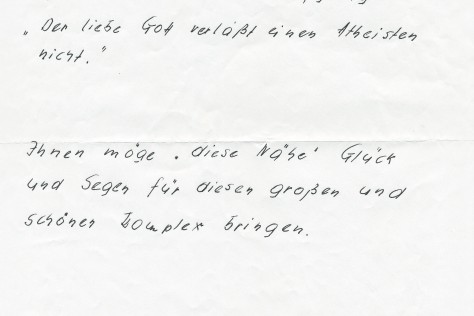 „Der liebe Gott verläßt einen Atheisten
nicht."
Ihnen möge ‚diese Nähe' Glück
und Segen für diesen großen und
schönen Komplex bringen.